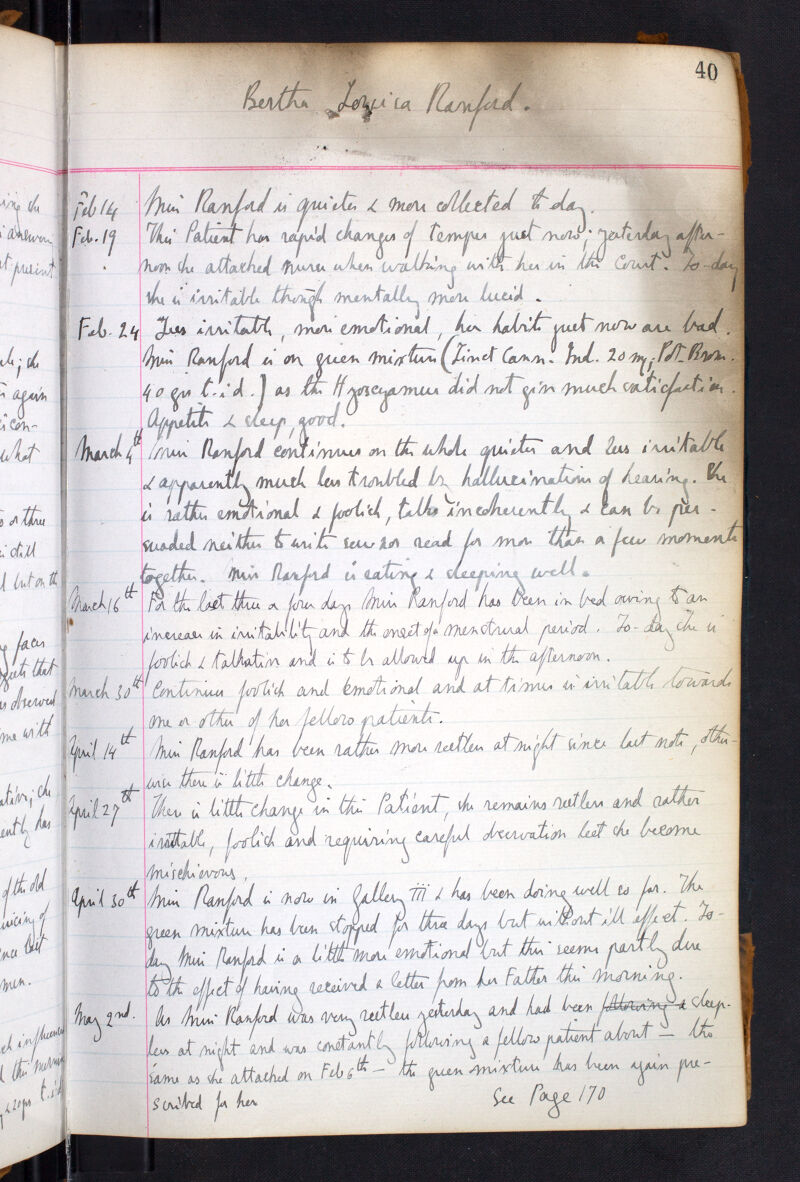 40
Bertha Louisa Ranford.
Feb 14 Miss Ranford is quieter & more collected to day.
Feb. 19 This Patient has rapid changes of temper just now; yesterday after-
noon she attacked nurse when walking with her in the Court. To-day
she is irritable though mentally more lucid.
Feb. 24 Less irritable, more emotional, her habits just now are bad.
Miss Ranford is on green mixture (Tinct Cann. Ind. 20 m; Pot. Brom.
40 grs t.i.d.) as the Hyoscyamus did not give much satisfaction.
Appetite & sleep, good.
March 4th Miss Ranford continues on the whole quieter and less irritable
& apparently much less troubled by hallucinations of hearing. She
is rather emotional & foolish, talks incoherently & can be per-
suaded neither to write sew nor read for more than a few moments
together. Miss Ranford is eating & sleeping well.
March 16th For the last three or four days Miss Ranford has been in bed owing to an
increase in irritability and the onset of a menstrual period. To-day she is
foolish & talkative and is to be allowed up in the afternoon.
March 30th Continues foolish and emotional and at times is irritable towards
one or other of her fellow patients.
April 14th Miss Ranford has been rather more restless at night since last note, other-
wise there is little change.
April 27th There is little change in this Patient, she remains restless and rather
irritable, foolish and requiring careful observation lest she become
mischievous.
April 30th Miss Ranford is now in Gallery III & has been doing well so far. The
green mixture has been stopped for three days but without ill effect. To-
day Miss Ranford is a little more emotional but this seems partly due
to the effect of having received a letter from her Father this morning.
May 2nd. As Miss Ranford was very restless yesterday and had been following a sleep-
less at night and was constantly following a fellow patient about — the
same as she attacked on Feb 6th — the green mixture has been again pre-
scribed for her
See Page 170